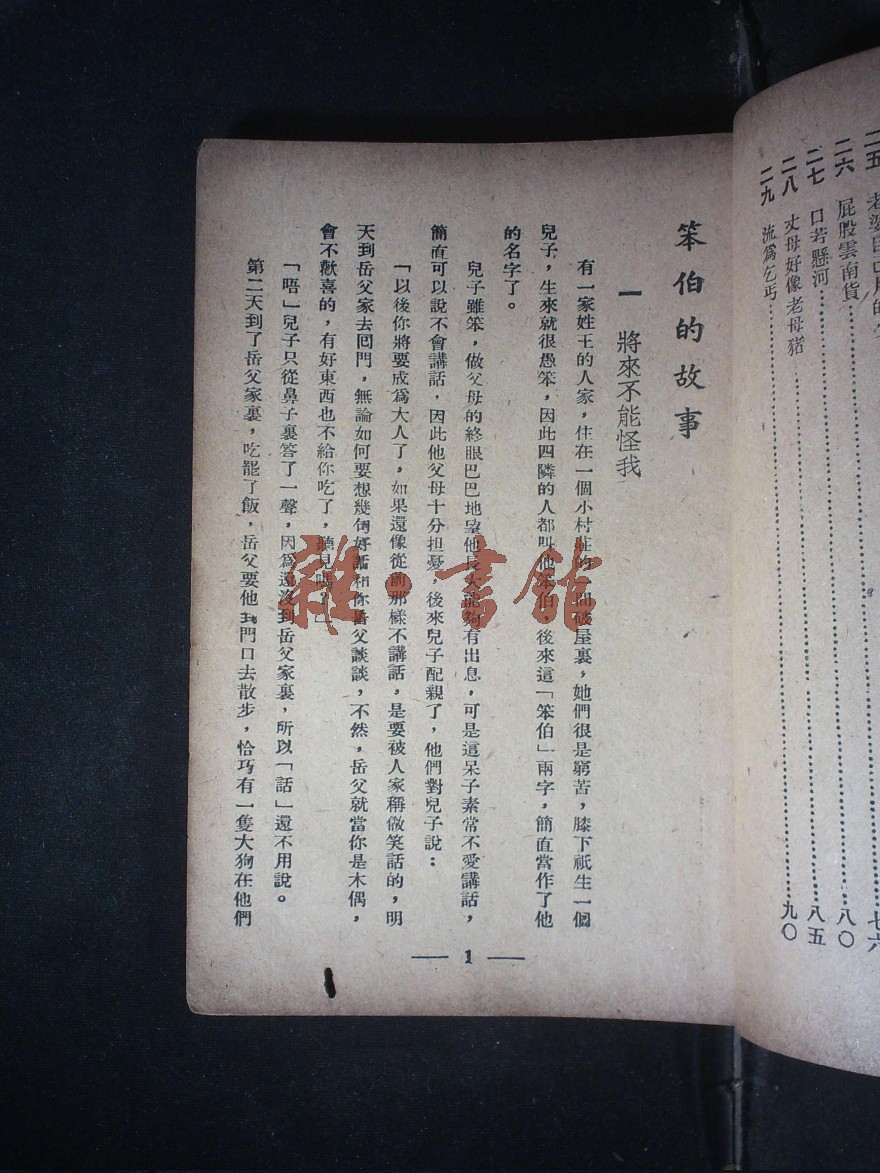 二五 老婆
二六 屁股雲南貨……八〇
二七 口若懸河……八五
二八 丈母好像老母猪
二九 流爲乞丐……九〇
七六
笨伯的故事
一 將來不能怪我
有一家姓王的人家，住在一個小村莊的一間破屋裏，她們很是窮苦，膝下祇生一個
兒子，生來就很愚笨，因此四隣的人都叫他笨伯，後來這「笨伯」兩字，簡直當作了他
的名字了。
兒子雖笨，做父母的終眼巴巴地望他長大能夠有出息，可是這呆子素常不愛講話，
簡直可以說不會講話，因此他父母十分担憂，後來兒子配親了，他們對兒子說：
「以後你將要成爲大人了，如果還像從前那樣不講話，是要被人家稱做笑話的，明
天到岳父家去回門，無論如何要想幾句好話和你岳父談談，不然，岳父就當你是木偶，
會不歡喜的，有好東西也不給你吃了，聽見嗎？」
「唔」兒子只從鼻子裏答了一聲，因爲還沒到岳父家裏，所以「話」還不用說。
第二天到了岳父家裏，吃罷了飯，岳父要他到門口去散步，恰巧有一隻大狗在他們
— 1 —
雜·書館